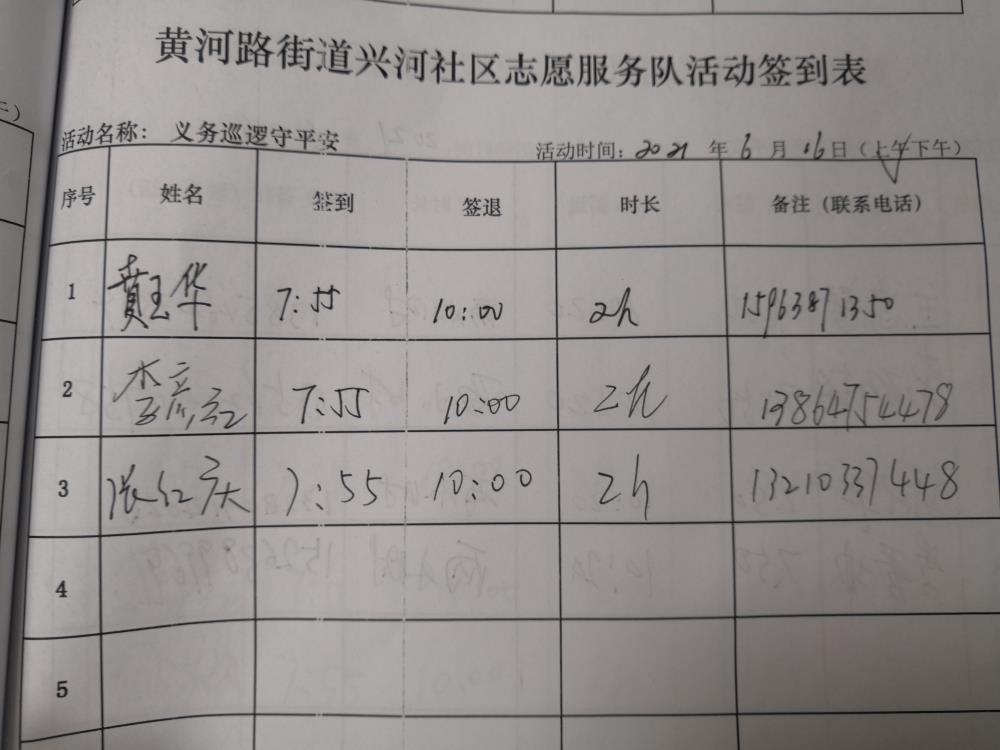 黄河路街道兴河社区志愿服务队活动签到表
活动名称： 义务巡逻守平安
活动时间：2021 年 6 月 16日（上午√下午）
序号 姓名 签到 签退 时长 备注（联系电话）
1 黄玉华 7:55 10:00 2h 15963871350
2 李彦红 7:55 10:00 2h 13864754478
3 张红 7:55 10:00 2h 13210337448
4
5